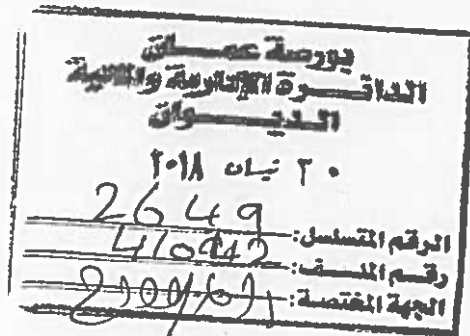 بورصة عمان
الدائرة الإدارية والمالية
الديوان
٣٠ نيسان ٢٠١٨
الرقم المتسلسل: 2649
رقم الملف:
الجهة المختصة: